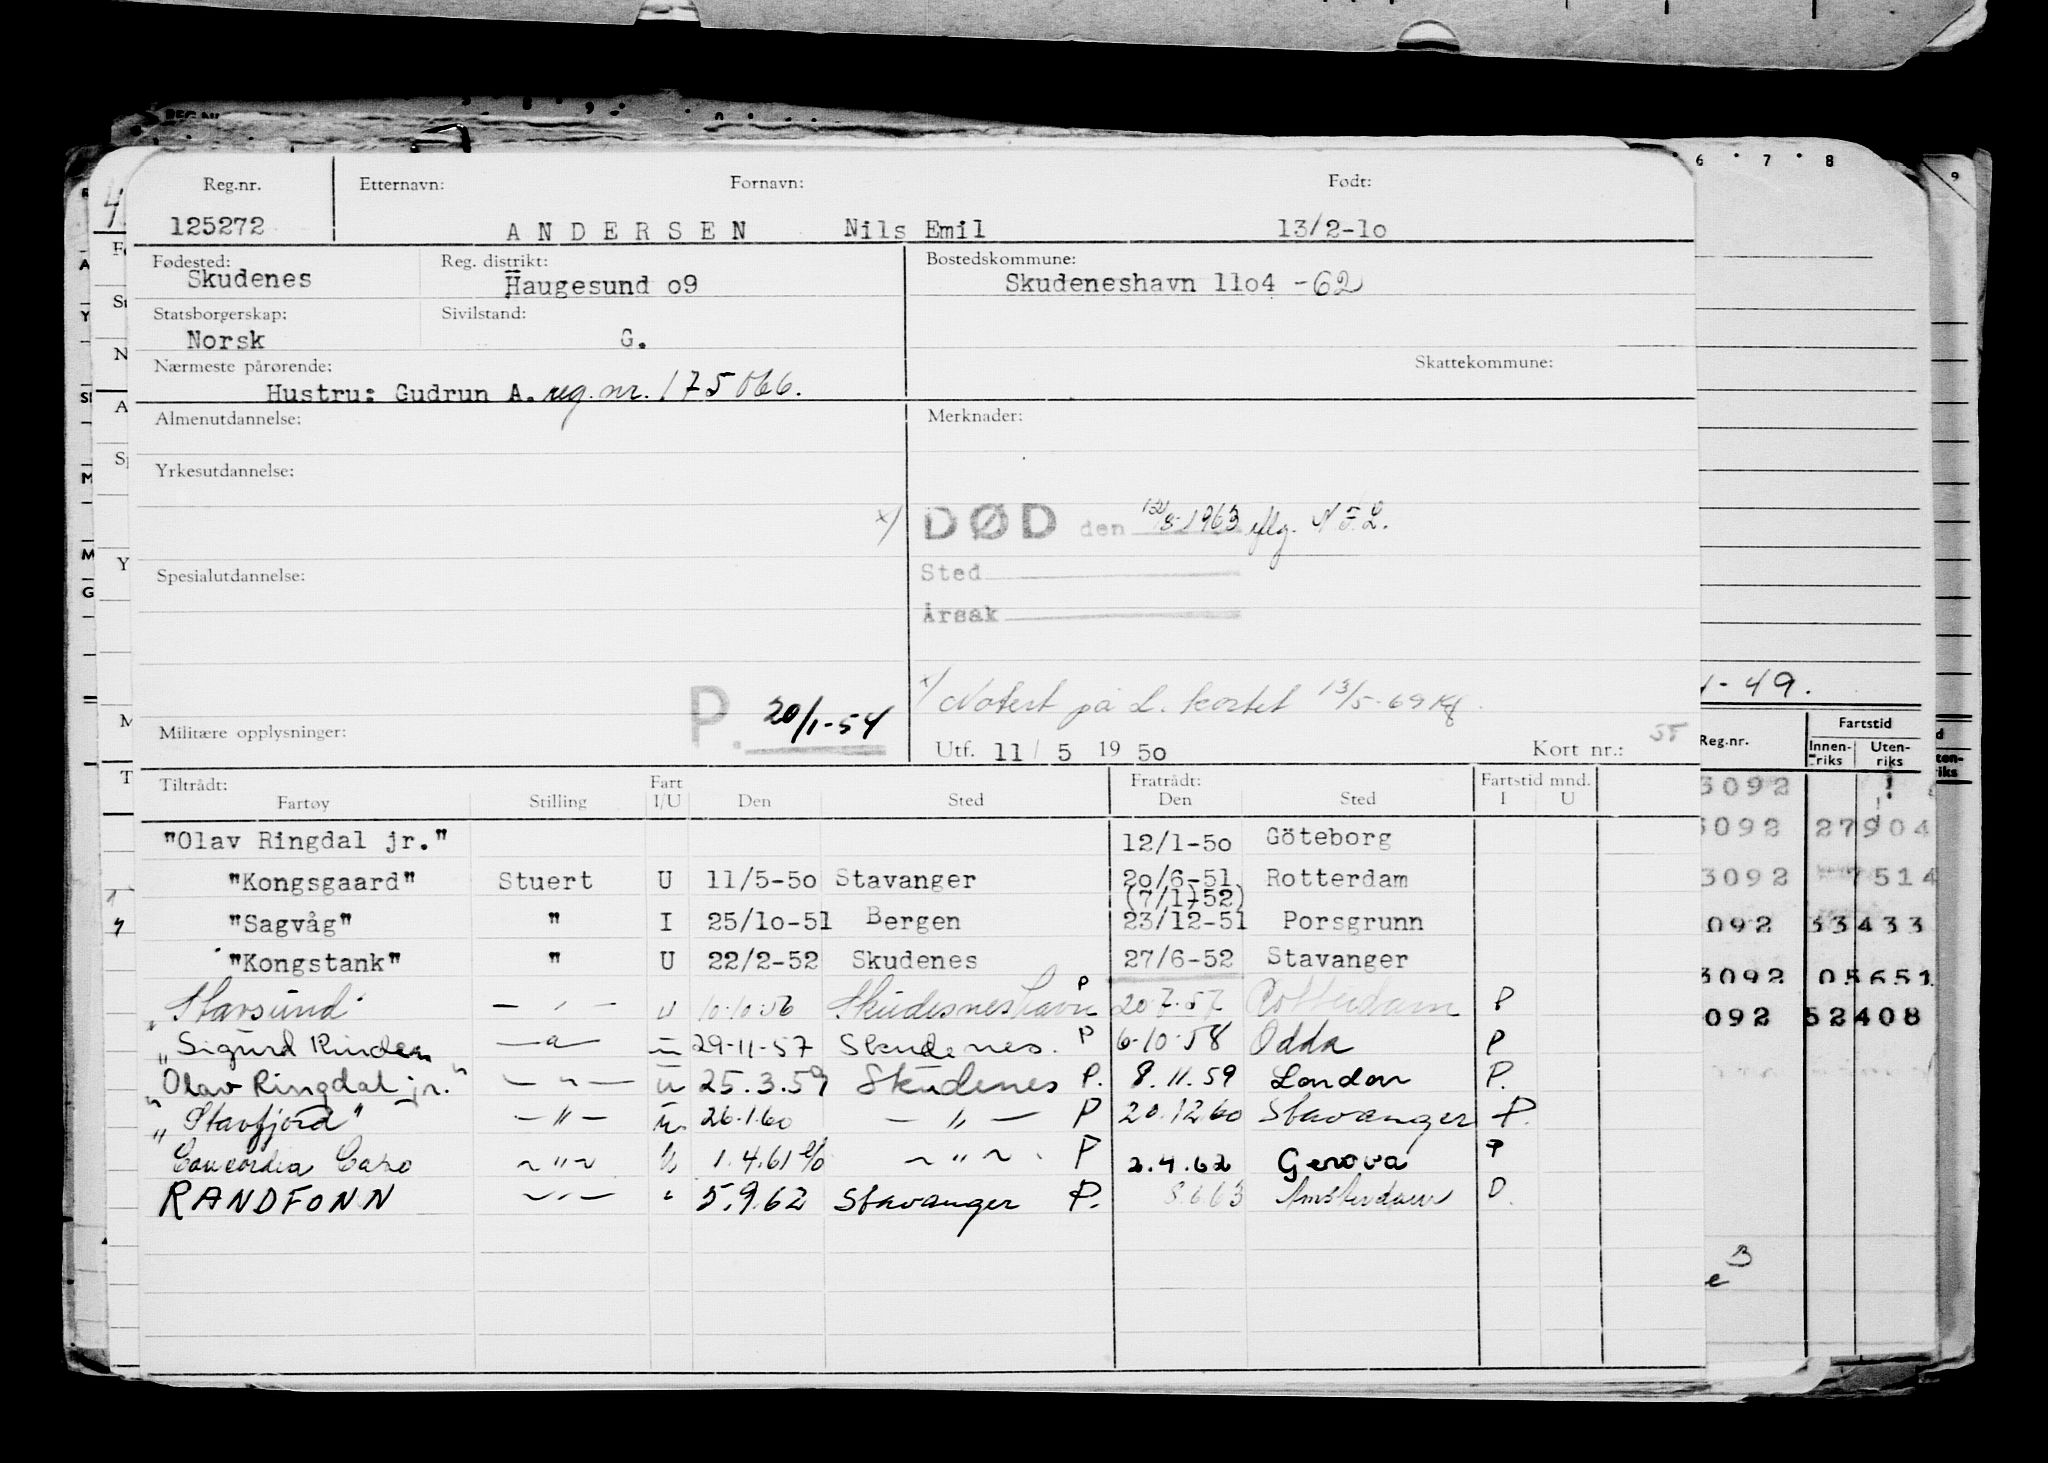 Reg.nr. Etternavn: Fornavn: Født:
125272 ANDERSEN Nils Emil 13/2-1o
Fødested: Reg. distrikt: Bostedskommune:
Skudenes Haugesund o9 Skudeneshavn 11o4 -62
Statsborgerskap: Sivilstand:
Norsk G.
Nærmeste pårørende: Skattekommune:
Hustru: Gudrun A. reg. nr. 175066.
Almenutdannelse: Merknader:
Yrkesutdannelse:
x) DØD den 12/8-1963 iflg. N.F.L.
Spesialutdannelse: Sted
Årsak
P. 20/1-54
x/ Notert på L. kortet 13/5-69
Militære opplysninger: Utf. 11 / 5 19 5o Kort nr.:
Tiltrådt: Fart Fratrådt: Fartstid mnd.
Fartøy Stilling I/U Den Sted Den Sted I U
"Olav Ringdal jr." 12/1-5o Göteborg
"Kongsgaard" Stuert U 11/5-5o Stavanger 2o/6-51 Rotterdam
(7/1-52)
"Sagvåg" " I 25/1o-51 Bergen 23/12-51 Porsgrunn
"Kongstank" " U 22/2-52 Skudenes 27/6-52 Stavanger
"Starsund" — " — u 10.10.56 Skudesneshavn P 20.7.57 Rotterdam P
"Sigurd Rinden" — " — u 29-11-57 Skudenes. P 6-10-58 Odda P
"Olav Ringdal jr." — " — u 25.3.59 Skudenes P. 8.11.59 London P.
"Stavfjord" — " — u. 26.1.60 — " — P 20.12.60 Stavanger P.
Concordia Caro — " — 1.4.61 — " — P 2.4.62 Genova P
RANDFONN — " — " 5.9.62 Stavanger P. 8.6.63 Amsterdam P.
6 7 8 9
49.
Reg.nr. Fartstid
Innen-riks Uten-riks
3092
3092 27904
3092 7514
092 33433
3092 05651
092 52408